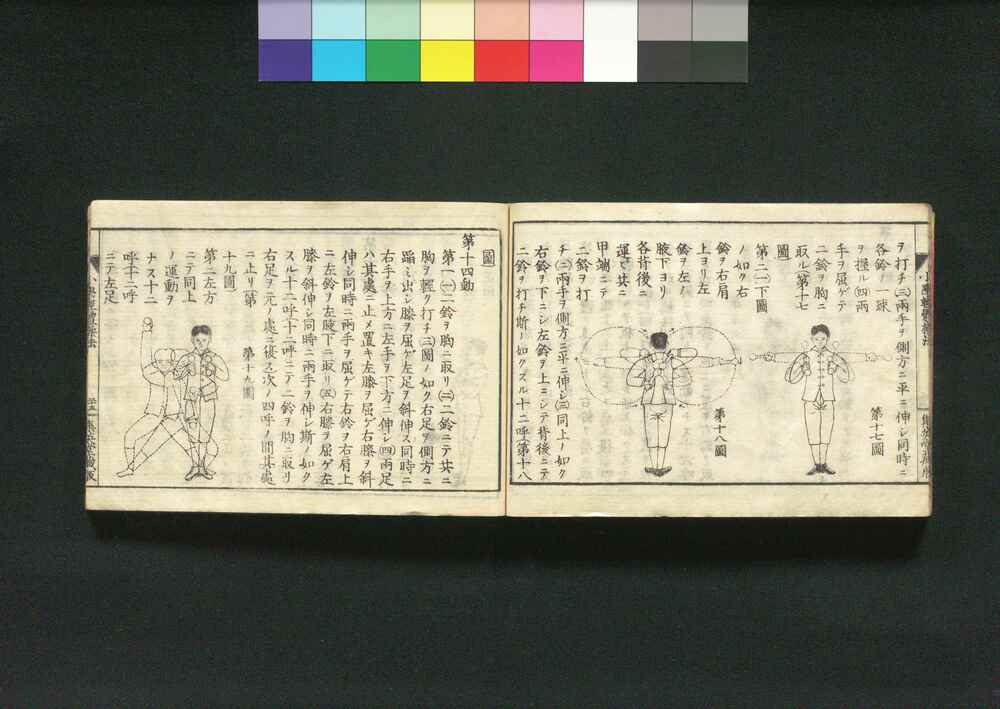 ヲ打チ(三)兩手ヲ側方ニ平ニ伸シ同時ニ
各鈴ノ一球
ヲ握ル(四)兩
手ヲ屈ゲテ
二鈴ヲ胸ニ
取ル(第十七
圖
第十七圖
第二(一)下圖
ノ如ク右
鈴ヲ右肩
上ヨリ左
鈴ヲ左ノ
腋下ヨリ
各背後ニ
運ビ其ニ
甲端ニテ
二鈴ヲ打
第十八圖
チ(二)兩手ヲ側方ニ平ニ伸シ(三)同上ノ如ク
右鈴ヲ下ニシ左鈴ヲ上ニシテ背後ニテ
二鈴ヲ打チ斯ノ如クスル十二呼(第十八
圖)
第十四動
第一(一)二鈴ヲ胸ニ取リ(二)二鈴ニテ其ニ
胸ヲ輕ク打チ(三)圖ノ如ク右足ヲ側方ニ
蹈ミ出シ膝ヲ屈ゲ左足ヲ斜伸ス同時ニ
右手ヲ上方ニ左手ヲ下方ニ伸シ(四)兩足
ハ其處ニ止メ置キ左膝ヲ屈ゲ右膝ヲ斜
伸シ同時ニ兩手ヲ屈ゲテ右鈴ヲ右肩上
ニ左鈴ヲ左腋下ニ取リ(五)右膝ヲ屈ゲ左
膝ヲ斜伸シ同時ニ兩手ヲ伸シ斯ノ如ク
スル十二呼(十二呼ニテ二鈴ヲ胸ニ取リ
右足ヲ元ノ處ニ復ス次ノ四呼ノ間其處
ニ止リ)(第
十九圖)
第十九圖
第二左方
ニテ同上
ノ運動ヲ
ナス十二
呼十二呼
ニテ左足